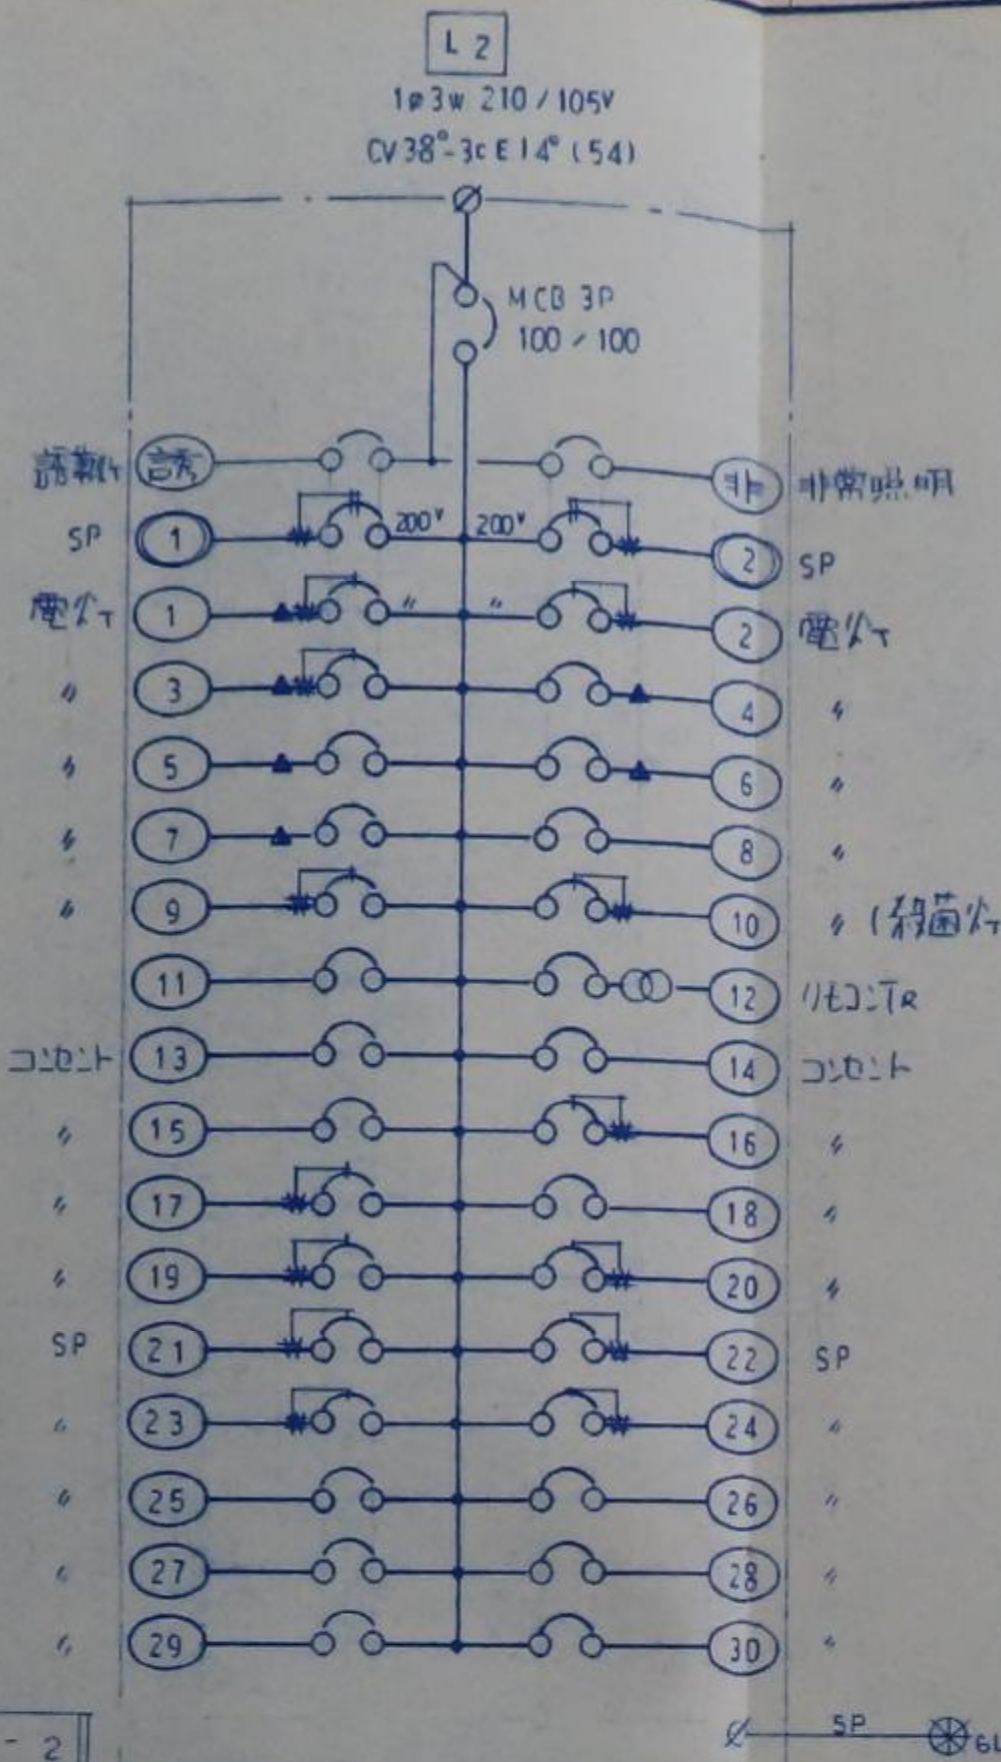 L 2
1ø3w 210/105V
CV38°-3c E14° (54)
MCB 3P
100/100
誘導灯 誘 非 非常照明
SP 1 200V 200V 2 SP
電灯 1 〃 〃 2 電灯
〃 3 4 〃
〃 5 6 〃
〃 7 8 〃
〃 9 10 〃 (殺菌灯
11 12 リモコンTR
コンセント 13 14 コンセント
〃 15 16 〃
〃 17 18 〃
〃 19 20 〃
SP 21 22 SP
〃 23 24 〃
〃 25 26 〃
〃 27 28 〃
〃 29 30 〃
- 2 SP GL